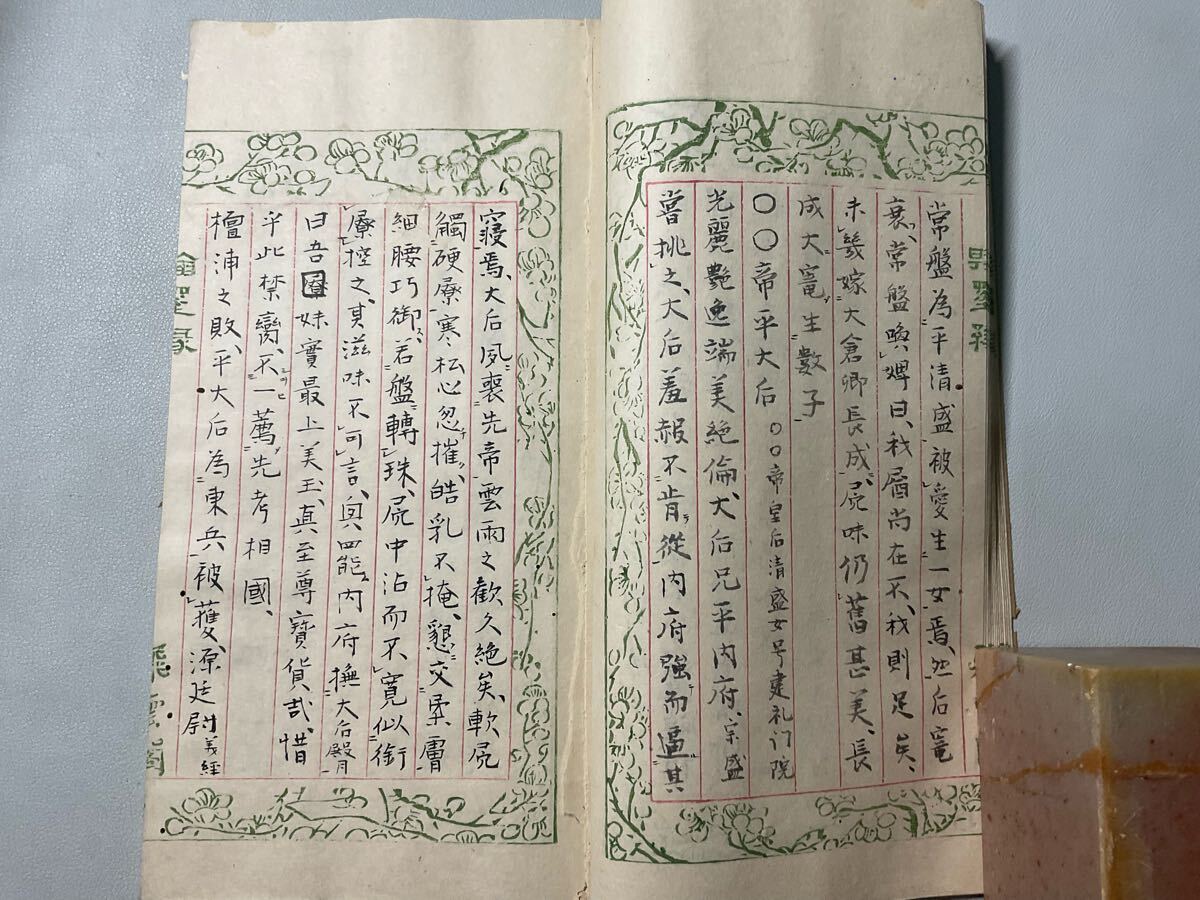 常盤為平清盛被愛生一女焉、然后寵
衰、常盤喚婢曰、我屑尚在不、我則足矣、
未幾嫁大倉卿長成、屄味仍舊甚美、長
成大寵生數子
〇〇帝平大后 〇〇帝皇后清盛女号建礼门院
光麗艶逸端美絶倫、大后兄平内府、宗盛
嘗挑之、大后羞赧不肯從、内府強而逼其
寢焉、大后夙喪先帝雲雨之歡久絶矣、軟屄
觸硬㞗寒松心忽摧皓乳不掩、懇交柔膚
細腰巧御、若盤轉珠、屄中沾而不寛似銜
㞗控之、其滋味不可言、輿四能、内府撫大后殿肖
曰吾圀妹實最上美玉、真至尊寶貨哉、惜
乎此禁臠、不一薦先考相國、
檀浦之敗、平大后為東兵被獲、源廷尉義經